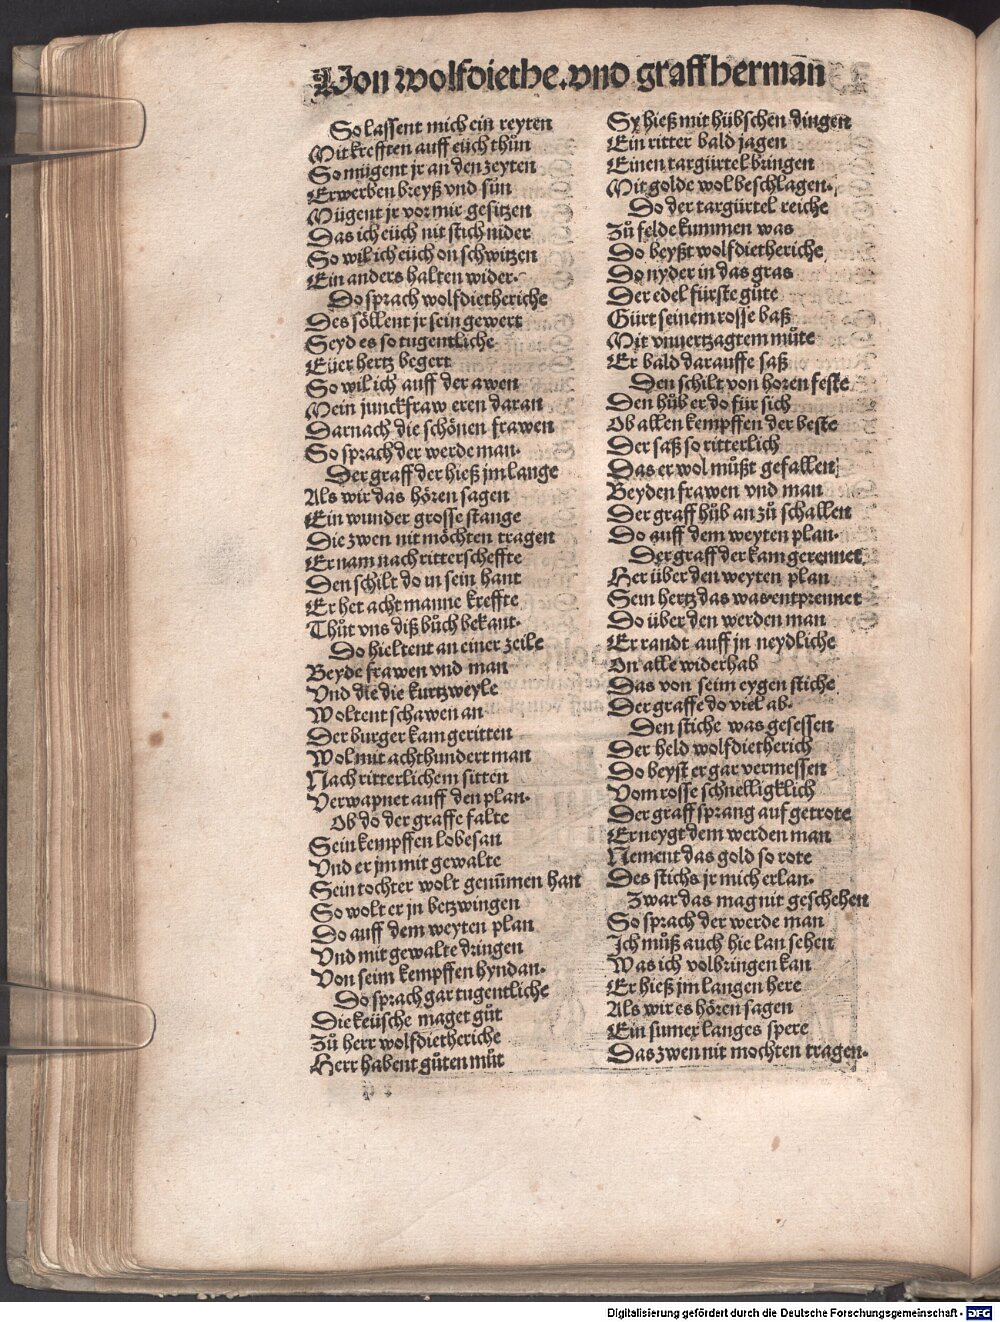 Von wolfdiethe. vnd graff hermañ
So lassent mich ein reyten
Mit krefften auff eüch thůn
So mügent jr an den zeyten
Erwerben breyß vnd sůn
Mügent jr vor mir gesitzen
Das ich eüch nit stich nider
So wil ich eüch on schwitzen
Ein anders halten wider.
Do sprach wolfdietheriche
Des söllent jr sein gewert
Seyd es so tugentliche
Eüer hertz begert
So wil ich auff der awen
Mein junckfraw eren daran
Darnach die schönen frawen
So sprach der werde man.
Der graff der hieß jm lange
Als wir das hören sagen
Ein wunder grosse stange
Die zwen nit möchten tragen
Er nam nach ritterscheffte
Den schilt do in sein hant
Er het acht manne kreffte
Thůt vns diß bůch bekant.
Do hieltent an einer zeile
Beyde frawen vnd man
Vnd die die kurtzweyle
Woltent schawen an
Der burger kam geritten
Wol mit achthundert man
Nach ritterlichem sitten
Verwapnet auff den plan.
Ob do der graffe falte
Sein kempffen lobesan
Vnd er jm mit gewalte
Sein tochter wolt genũmen han
So wolt er jn betzwingen
Do auff dem weyten plan
Vnd mit gewalte dringen
Von seim kempffen hyndan.
Do sprach gar tugentliche
Die keüsche maget gůt
Zů herr wolfdietheriche
Herr habent gůten můt
Sy hieß mit hübschen dingen
Ein ritter bald jagen
Einen targürtel bringen
Mit golde wol beschlagen.
Do der targürtel reiche
Zů felde kummen was
Do beyßt wolfdietheriche
Do nyder in das gras
Der edel fürste gůte
Gürt seinem rosse baß
Mit vnuertzagtem můte
Er bald darauffe saß
Den schilt von horen feste
Den hůb er do für sich
Ob allen kempffen der beste
Der saß so ritterlich
Das er wol můßt gefallen
Beyden frawen vnd man
Der graff hůb an zů schallen
Do auff dem weyten plan.
Der graff der kam gerennet
Her über den weyten plan
Sein hertz das was entprennet
Do über den werden man
Er randt auff jn neydliche
On alle widerhab
Das von seim eygen stiche
Der graffe do viel ab.
Den stiche was gesessen
Der held wolfdietherich
Do beyst er gar vermessen
Vom rosse schnelligklich
Der graff sprang auf getrote
Er neygt dem werden man
Nement das gold so rote
Des stichs jr mich erlan.
Zwar das mag nit geschehen
So sprach der werde man
Ich můß auch hie lan sehen
Was ich volbringen kan
Er hieß jm langen here
Als wir es hören sagen
Ein sumer langes spere
Das zwen nit mochten tragen.
Digitalisierung gefördert durch die Deutsche Forschungsgemeinschaft - DFG